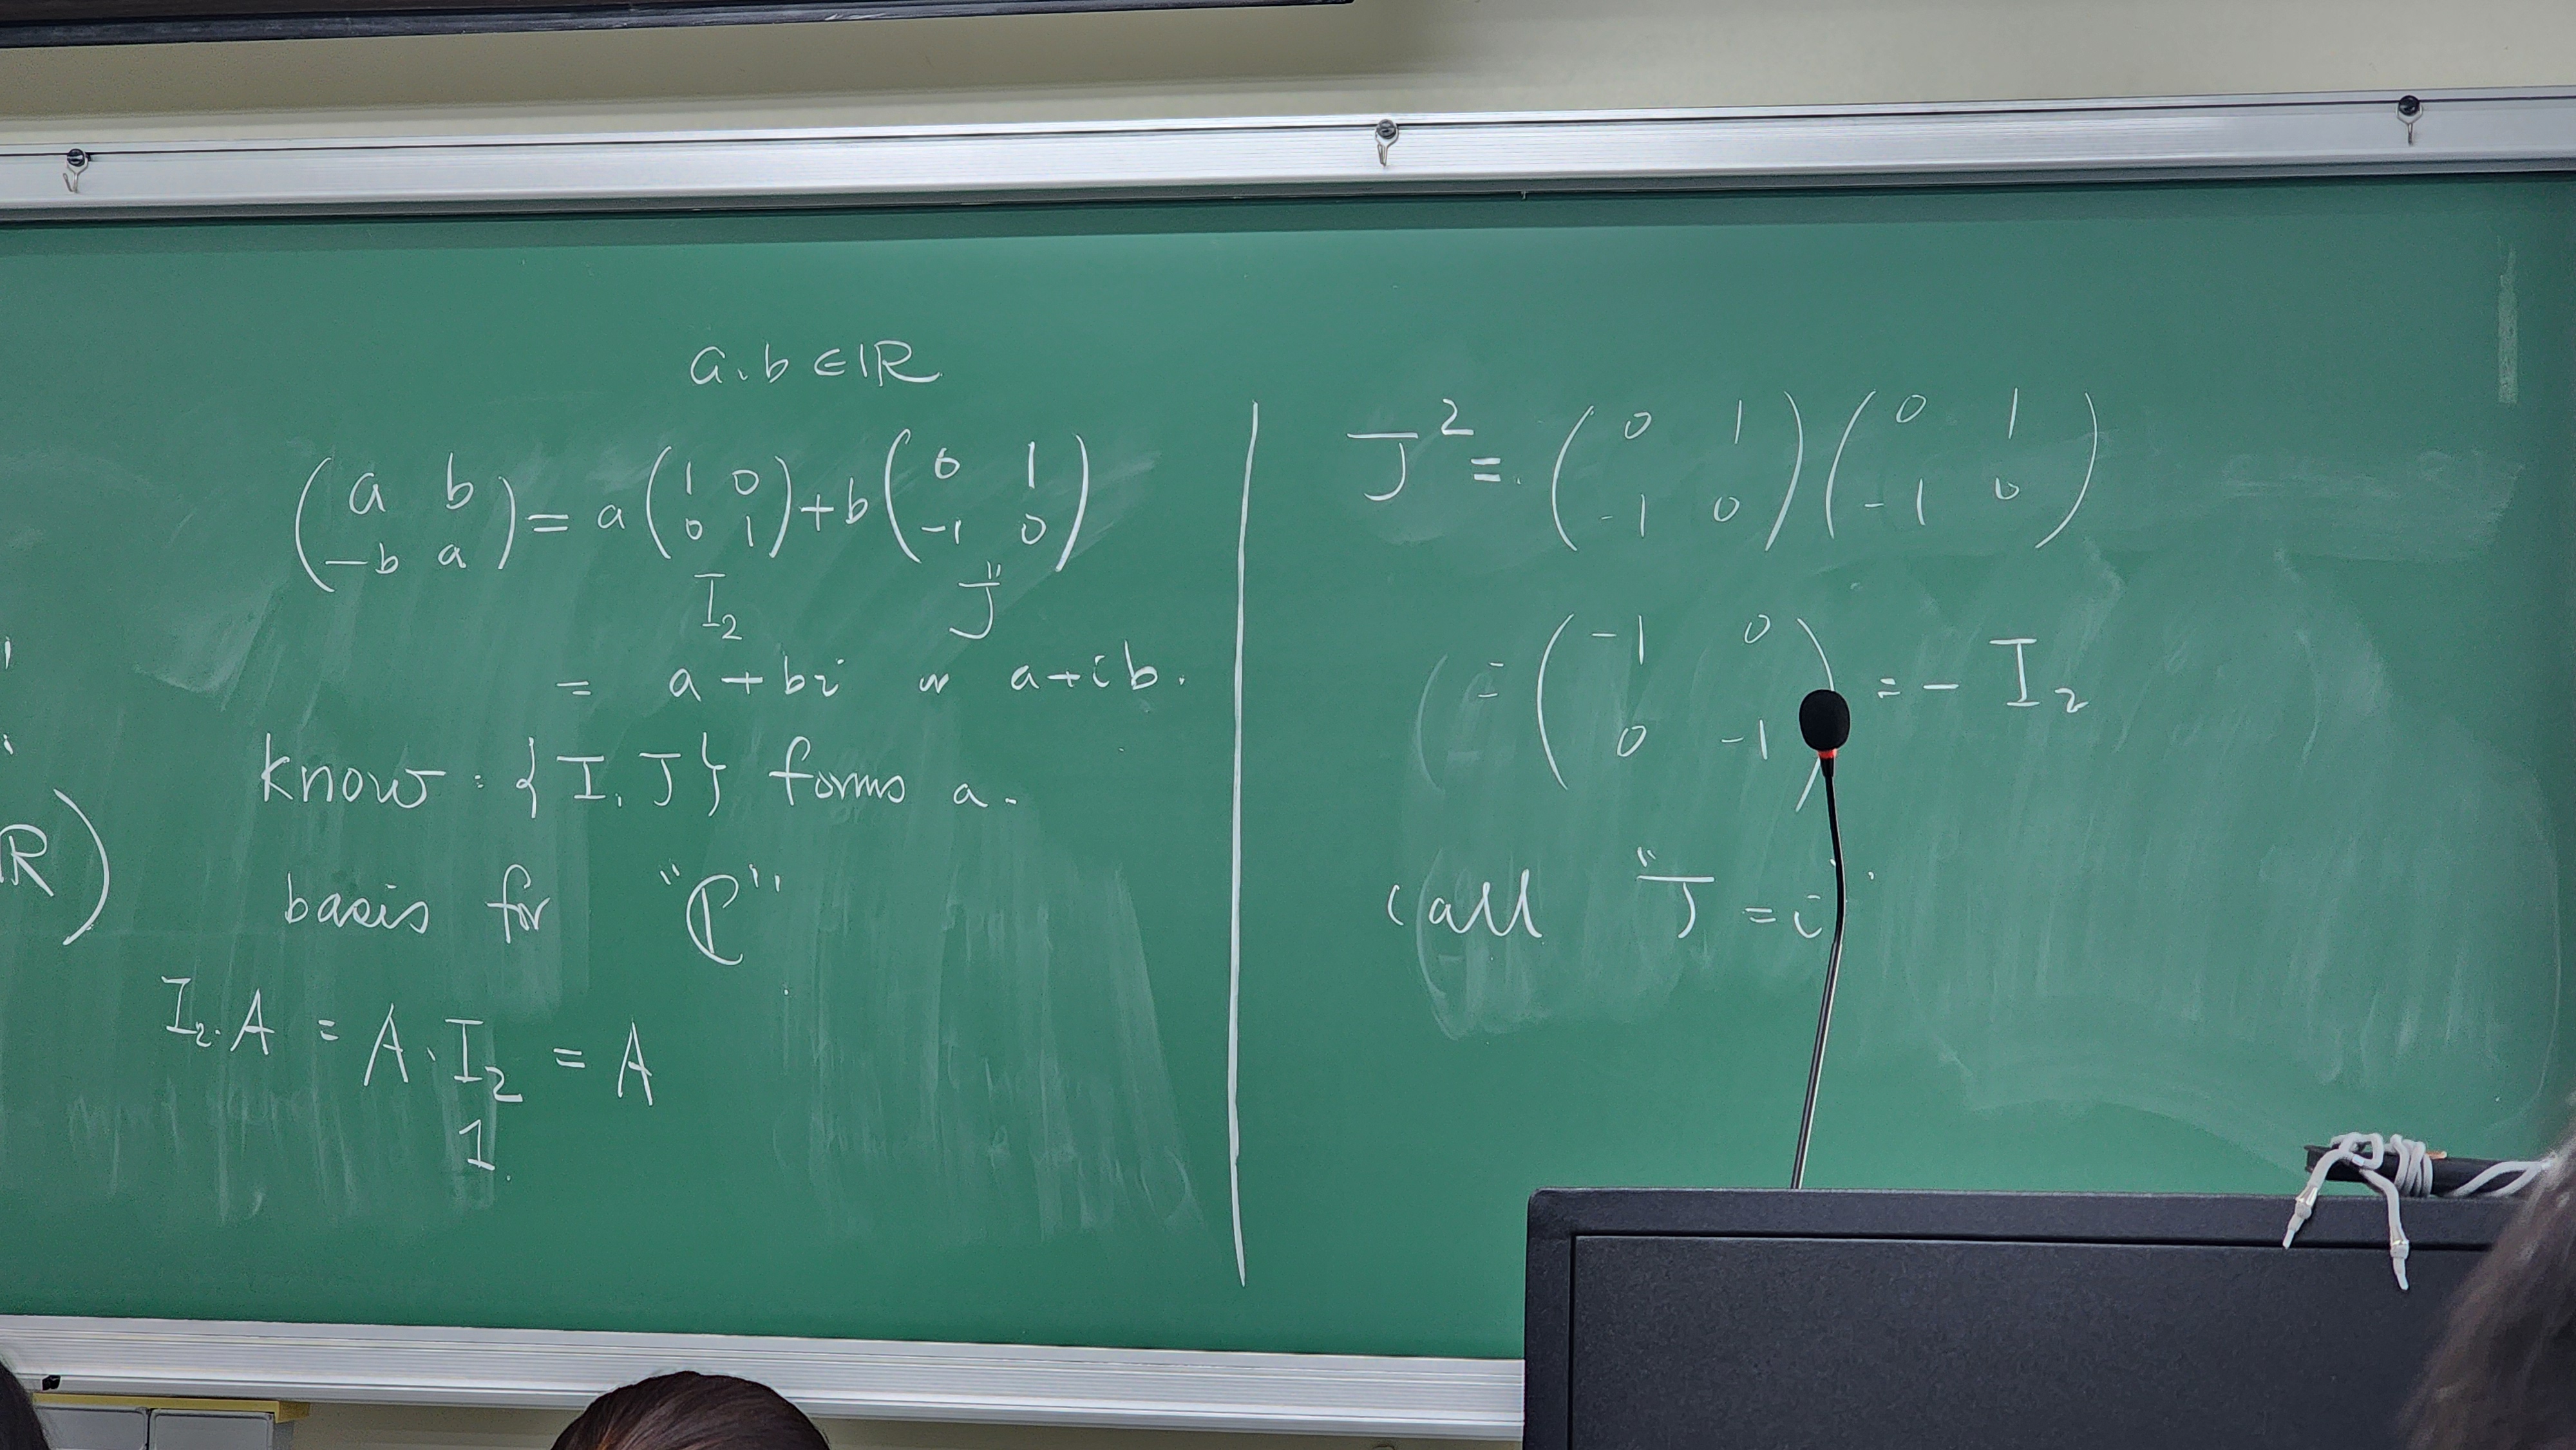 a, b ∈ ℝ
( a b ; -b a ) = a ( 1 0 ; 0 1 ) + b ( 0 1 ; -1 0 )
I₂ " J
= a + bi or a + ib.
know : { I, J } forms a.
basis for "ℂ"
I₂. A = A. I₂ = A
1.
R )
J² = ( 0 1 ; -1 0 ) ( 0 1 ; -1 0 )
= ( -1 0 ; 0 -1 ) = - I₂
call "J = i"